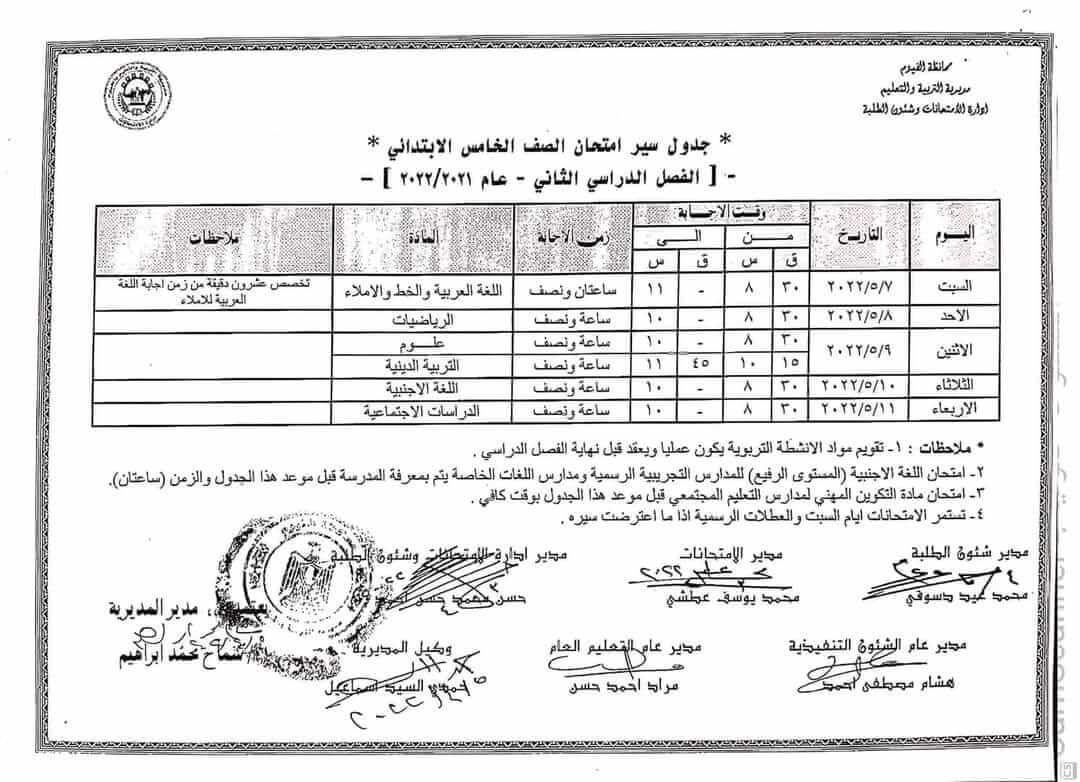 محافظة الفيوم
مديرية التربية والتعليم
ادارة الامتحانات وشئون الطلبة
* جدول سير امتحان الصف الخامس الابتدائي *
- [ الفصل الدراسي الثاني - عام ٢٠٢٢/٢٠٢١ ] -
اليوم التاريخ وقت الاجابة زمن الاجابة المادة ملاحظات
من الى
ق س ق س
السبت ٢٠٢٢/٥/٧ ٣٠ ٨ - ١١ ساعتان ونصف اللغة العربية والخط والاملاء تخصص عشرون دقيقة من زمن اجابة اللغة
العربية للاملاء
الاحد ٢٠٢٢/٥/٨ ٣٠ ٨ - ١٠ ساعة ونصف الرياضيات
الاثنين ٢٠٢٢/٥/٩ ٣٠ ٨ - ١٠ ساعة ونصف علوم
١٥ ١٠ ٤٥ ١١ ساعة ونصف التربية الدينية
الثلاثاء ٢٠٢٢/٥/١٠ ٣٠ ٨ - ١٠ ساعة ونصف اللغة الاجنبية
الاربعاء ٢٠٢٢/٥/١١ ٣٠ ٨ - ١٠ ساعة ونصف الدراسات الاجتماعية
* ملاحظات : ١- تقويم مواد الانشطة التربوية يكون عمليا ويعقد قبل نهاية الفصل الدراسي .
٢- امتحان اللغة الاجنبية (المستوى الرفيع) للمدارس التجريبية الرسمية ومدارس اللغات الخاصة يتم بمعرفة المدرسة قبل موعد هذا الجدول والزمن (ساعتان).
٣- امتحان مادة التكوين المهني لمدارس التعليم المجتمعي قبل موعد هذا الجدول بوقت كافي .
٤- تستمر الامتحانات ايام السبت والعطلات الرسمية اذا ما اعترضت سيره .
مدير شئون الطلبة مدير الامتحانات مدير ادارة الامتحانات وشئون الطلبة
محمد عيد دسوقي محمد يوسف عطشي حسن محمد حسن
مدير المديرية
مدير عام الشئون التنفيذية مدير عام التعليم العام وكيل المديرية
سماح محمد ابراهيم
هشام مصطفى احمد مراد احمد حسن حمدي السيد اسماعيل